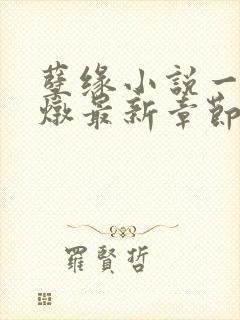 孽缘小説一
燉最新章節
羅賢哲